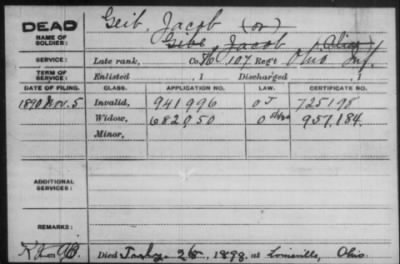 DEAD
Geib, Jacob (or)
NAME OF SOLDIER:
Gibe Jacob (Alias)
SERVICE: Late rank, Co. 107 Regt Ohio Inf.
TERM OF SERVICE: Enlisted , 1 Discharged , 1
DATE OF FILING. CLASS. APPLICATION NO. LAW. CERTIFICATE NO.
1890 Nov. 5 Invalid, 941996 725198
Widow, 682050 957,184.
Minor,
ADDITIONAL SERVICES:
REMARKS:
Died 26, 1898, at Louisville, Ohio.